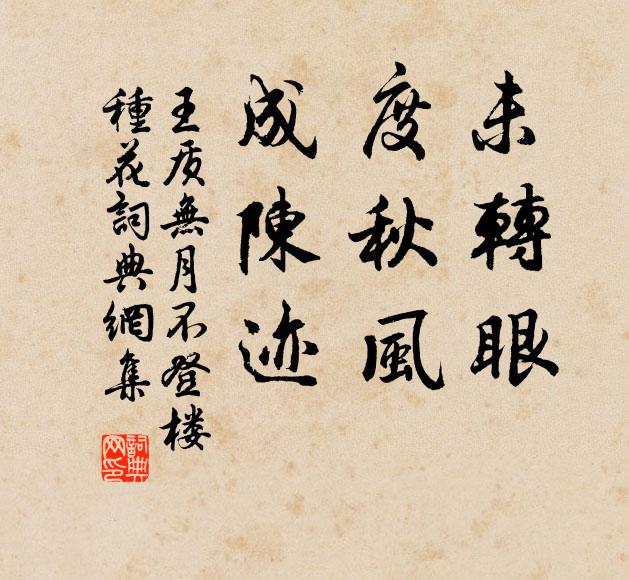 未轉眼
度秋風
成陳迹
王质無月不登楼
種花詞典網集
詞典
网印